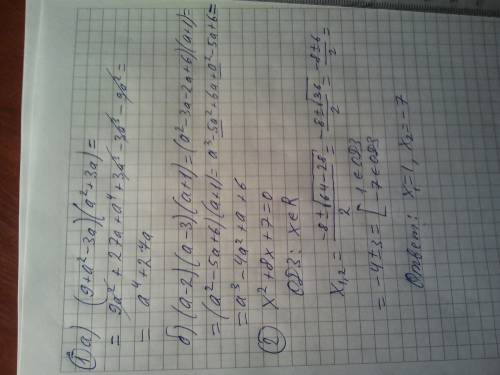 ① а) (9+a²-3a)(a²+3a)=
= 9a²+27a+a⁴+3a³-3a³-9a²=
= a⁴+27a
б) (a-2)(a-3)(a+1)=(a²-3a-2a+6)(a+1)=
=(a²-5a+6)(a+1)=a³-5a²+6a+a²-5a+6=
= a³-4a²+a+6
② x²+8x+7=0
ОДЗ: x∈R
x₁,₂ = (-8±√(64-28))/2 = (-8±√36)/2 = (-8±6)/2 =
= -4±3 = [ -1 ∈ ОДЗ
-7 ∈ ОДЗ
Ответ: x₁=1, x₂=-7